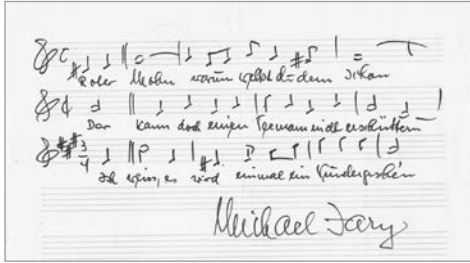 Roter Mohn warum welkst du denn schon
Das kann doch einen Seemann nicht erschüttern
Ich weiss, es wird einmal ein Wunder gescheh'n
Michael Jary